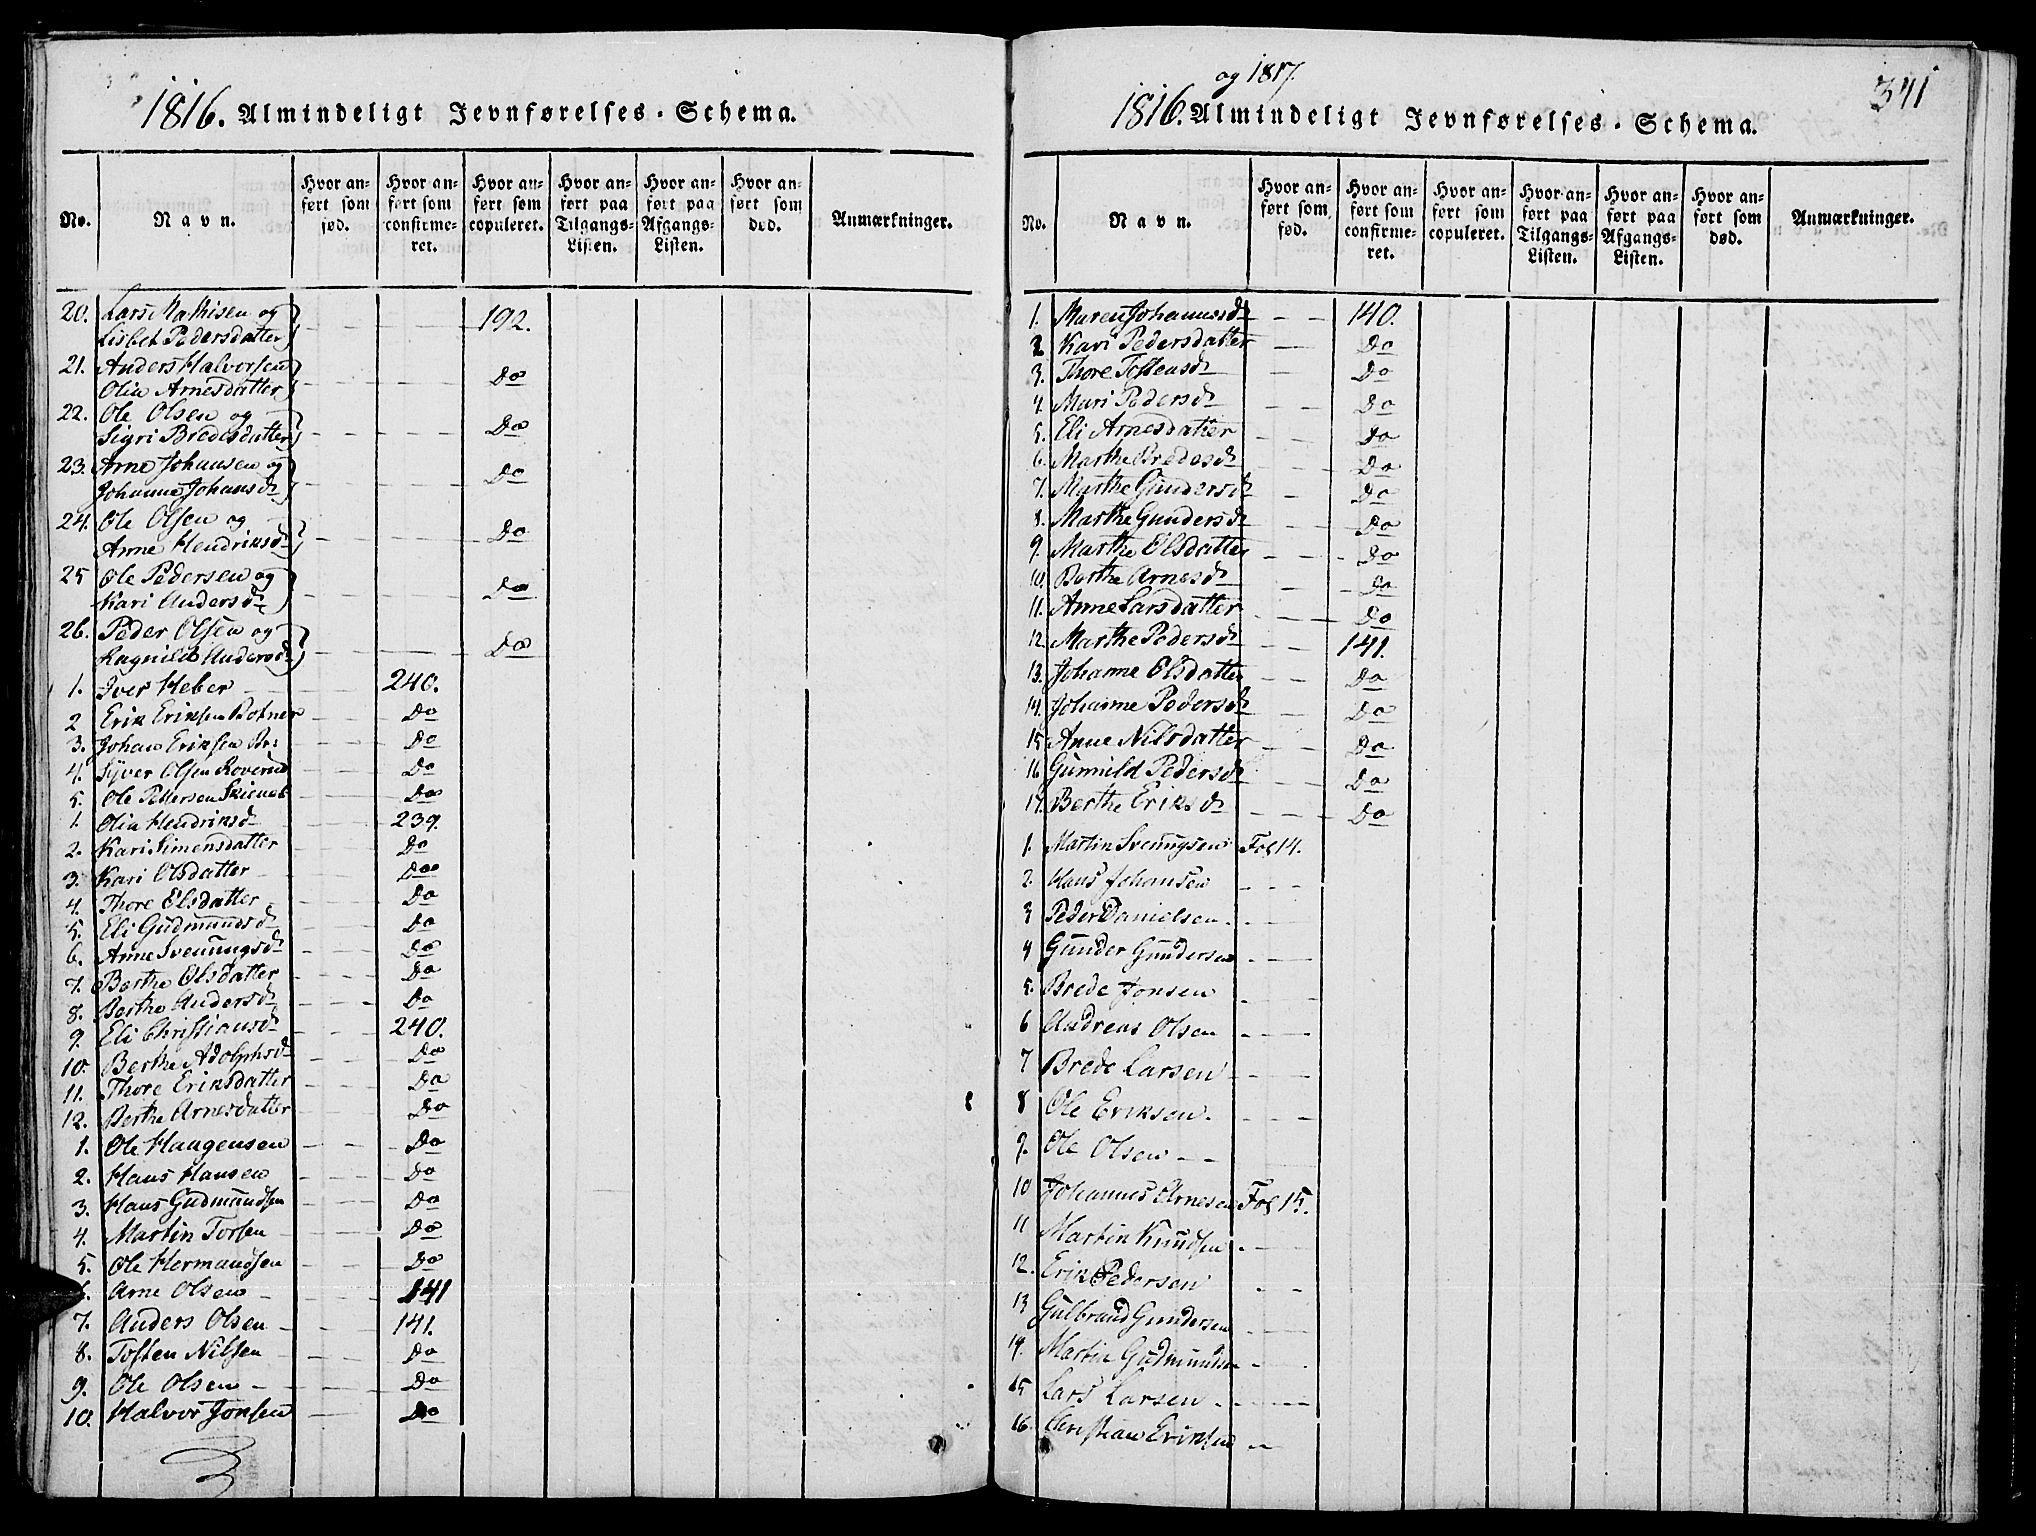 1816. Almindeligt Jevnførelses-Schema.
No.
Navn.
Hvor an-
ført som
fød.
Hvor an-
ført som
confirme-
ret.
Hvor an-
ført som
copuleret.
Hvor an-
ført paa
Tilgangs-
Listen.
Hvor an-
ført paa
Afgangs-
Listen.
Hvor an-
ført som
død.
Anmærkninger.
20. Lars Mathisen og
Lisbet Pedersdatter 192.
21. Anders Halvorsen
Olia Arnesdatter Do
22. Ole Olsen og
Sigri Bredesdatter Do
23. Arne Johansen og
Johanne Johansd Do
24. Ole Olsen og
Anne Hendriksd Do
25 Ole Pedersen og
Kari Andersd Do
26. Peder Olsen og
Ragnild Andersd Do
1. Iver Heber 240.
2 Erik Eriksen Botner Do
3. Johan Eriksen Do
4. Syver Olsen Roverud Do
5. Ole Pettersen Do
1. Olia Hendriksd 239.
2. Kari Simensdatter Do
3. Kari Olsdatter Do
4. Thore Elsdatter Do
5. Eli Gudmundsd Do
6. Anne Svenungsd Do
7. Berthe Olsdatter Do
8. Berthe Andersd Do
9. Eli Christiansd 240.
10. Berthe Adolphsd Do
11. Thore Eriksdatter Do
12. Berthe Arnesdatter Do
1. Ole Haugensen Do
2. Hans Hansen Do
3. Hans Gudmundsen Do
4. Martin Torsen Do
5. Ole Hermandsen Do
6. Arne Olsen 141
7. Anders Olsen 141.
8. Tosten Nilsen Do
9. Ole Olsen Do
10. Halvor Jonsen Do
og 1817.
1816. Almindeligt Jevnførelses-Schema.
341
No.
Navn.
Hvor an-
ført som
fød.
Hvor an-
ført som
confirme-
ret.
Hvor an-
ført som
copuleret.
Hvor an-
ført paa
Tilgangs-
Listen.
Hvor an-
ført paa
Afgangs-
Listen.
Hvor an-
ført som
død.
Anmærkninger.
1. Maren Johannesd 140.
2 Kari Pedersdatter Do
3. Thore Tostensd Do
4. Mari Pedersd Do
5. Eli Arnesdatter Do
6. Marthe Bredesd Do
7. Marthe Gundersd Do
8. Marthe Gundersd Do
9. Marthe Olsdatter Do
10. Berthe Arnesd Do
11. Anne Larsdatter Do
12. Marthe Pedersd 141.
13. Johanne Olsdatter Do
14. Johanne Pedersd Do
15 Anne Nilsdatter Do
16 Gunnild Pedersd Do
17. Berthe Eriksd Do
1. Martin Svenungsen Fol 14.
2. Hans Johansen
3 Peder Danielsen
4 Gunder Gundersen
5. Brede Jonsen
6 Andreas Olsen
7 Brede Larsen
8 Ole Eriksen.
9. Ole Olsen
10 Johannes Arnesen Fol 15.
11 Martin Knudsen
12. Erik Pedersen
13 Gulbrand Gundersen
14. Martin Gudmundsen
15 Lars Larsen
16. Christian Eriksen